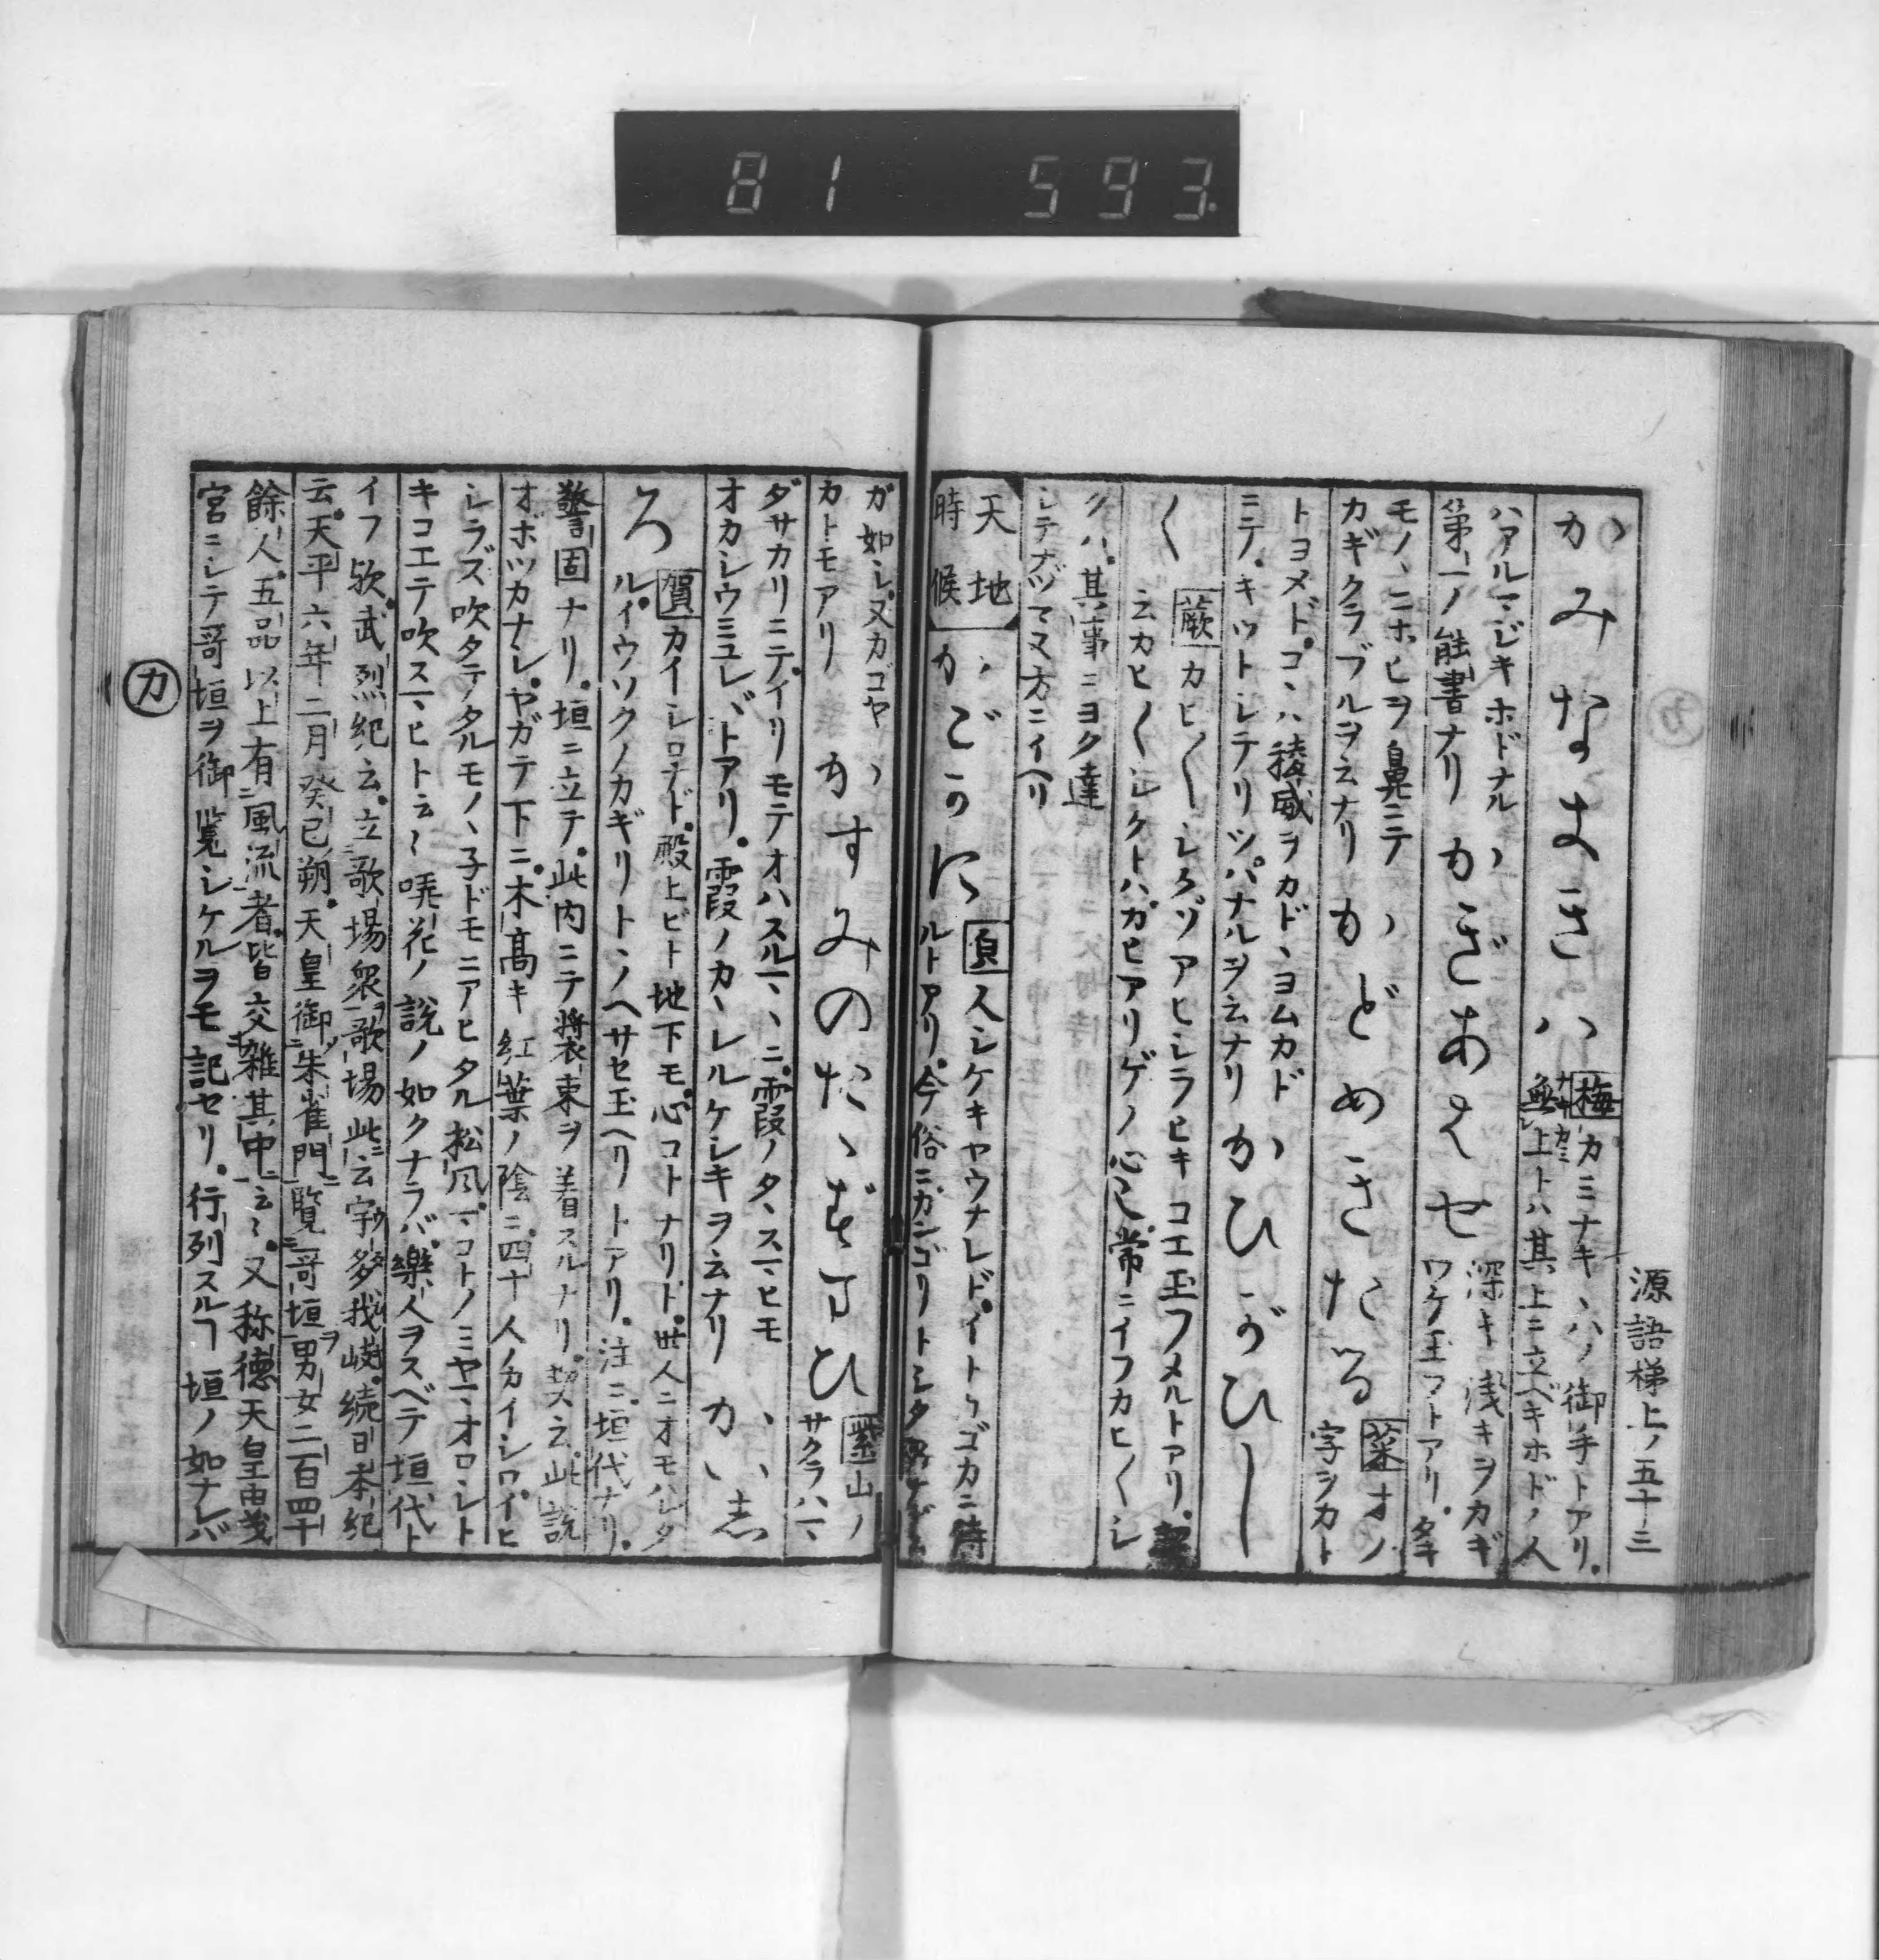 81 593
源語梯上ノ五十三
かみなきさハ 梅 カミナキヽハノ御手トアリ。
無上トハ其上ニ立ベキホドノ人
ハアルマジキホドナル
第一ノ能書ナリ
かぎあハセ 深キ浅キヲカギ
ワケ玉フトアリ。
モノヽニホヒヲ鼻ニテ
カギクラブルヲ云ナリ
かどめきたる 葉 オノ
字ヲカト
トヨメド。コヽハ稜威ヲカドヽヨムカド
ニテ。キットシテリツパナルヲ云ナリ
かひがひし
く 蕨 カヒ〱シクゾアヒシラヒキコエ玉フメルトアリ。
云カヒ〱シクトハ。カヒアリゲノ心也。常ニイフカヒ〱シ
クハ。其事ニヨク達
シテナヅマヌ方ニイヘリ
天地
時候
かごかに 夕 人シケキヤウナレド。イトカゴカニ侍
ルトアリ。今俗ニカンゴリトシタ
ガ如シ。又カゴヤ
カトモアリ
かすみのたゝずまひ 紫 山ノ
サクラハマ
ダサカリニテ。イリモテオハスルマヽニ。霞ノタヽスマヒモ
オカシウミユレバトアリ。霞ノカヽレルケシキヲ云ナリ
かいし
ろ 賀 カイシロナド。殿上ビト地下モ。心コトナリト。世人ニオモハレタ
ルイウソクノカギリトヽノヘサセ玉ヘリトアリ。注ニ。垣代ナリ。
警固ナリ。垣ニ立テ。此内ニテ裝束ヲ着スルナリ。契云。此説
オボツカナシ。ヤガテ下ニ。木高キ紅葉ノ陰ニ。四十人ノカイシロ。イヒ
シラズ吹タテタルモノヽ子ドモニアヒタル松風。マコトノミヤマオロシト
キコエテ吹スマヒト云〻 哢花ノ説ノ如クナラバ。樂人ヲスベテ垣代ト
イフ歟。武烈紀云。立歌場衆歌場此云宇多我岐。続日本紀
云。天平六年二月癸巳朔。天皇御朱雀門覧哥垣男女二百四十
餘人。五品以上有風流者。皆交雑其中云〻。又称徳天皇由義
宮ニシテ哥垣ヲ御覧シケルヲモ記セリ。行列スルヿ垣ノ如ナレバ
カ